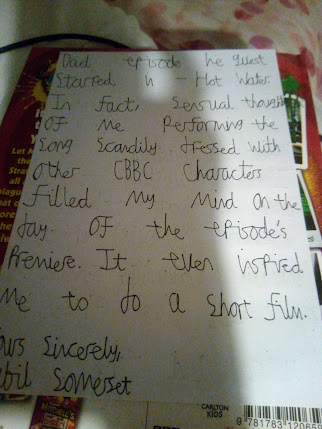 Dad episode he guest
Starred in - Hot Water.
In fact, Sensual thoughts
OF Me Performing the
Song Scandily dressed with
other CBBC Characters
Filled My Mind On the
day OF the episode's
Premiere. It even inspired
Me to do a Short Film.
Yours Sincerely,
Somerset
CARLTON
KIDS
9 781783 120659